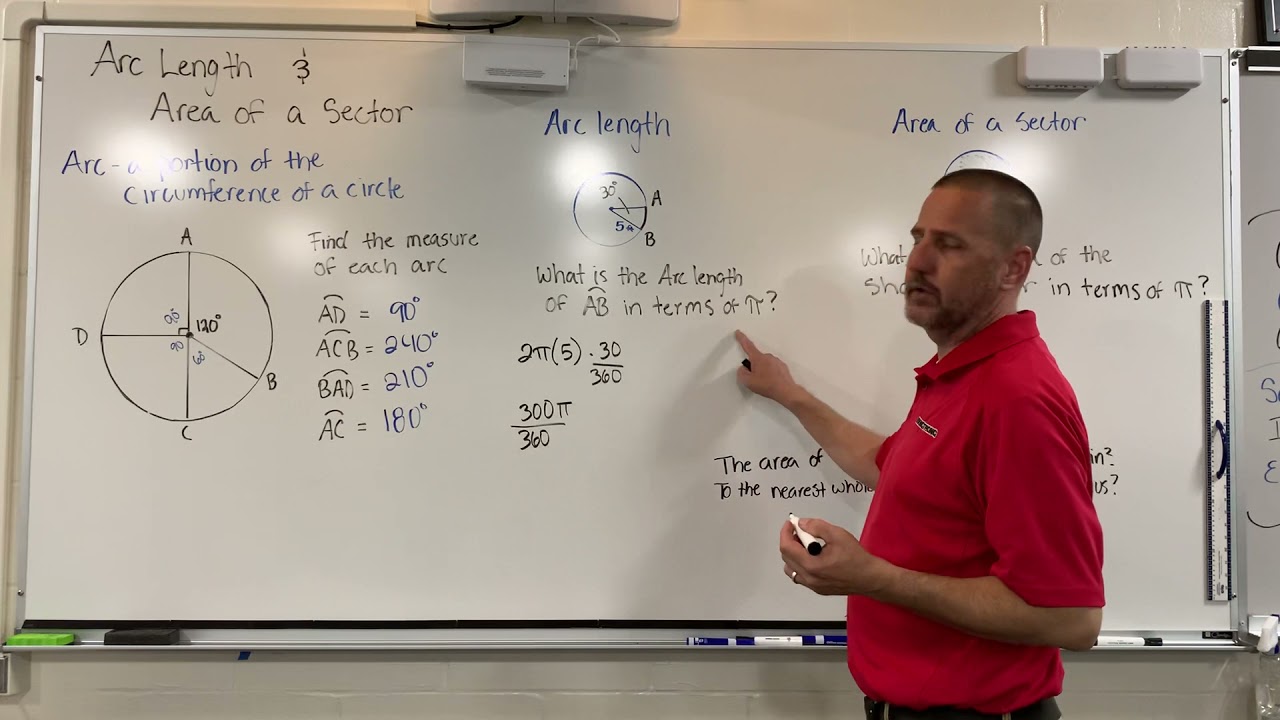 Arc Length &
Area of a Sector
Arc - a portion of the
circumference of a circle
A
D
120°
90
90
60°
B
C
Find the measure
of each arc
AD = 90°
ACB = 240°
BAD = 210°
AC = 180°
Arc length
30°
A
5
B
What is the Arc length
of AB in terms of π?
2π(5) · 30/360
300π/360
Area of a Sector
What of the
in terms of π?
The area of
To the nearest